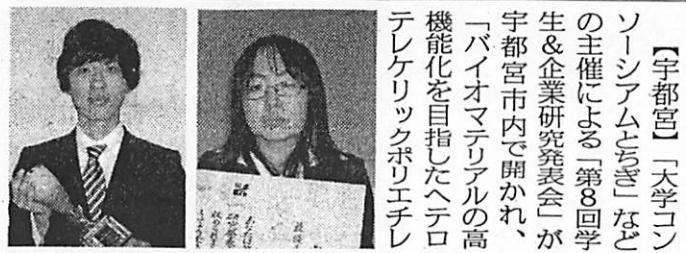 【宇都宮】「大学コン
ソーシアムとちぎ」など
の主催による「第8回学
生&企業研究発表会」が
宇都宮市内で開かれ、
「バイオマテリアルの高
機能化を目指したヘテロ
テレケリックポリエチレ